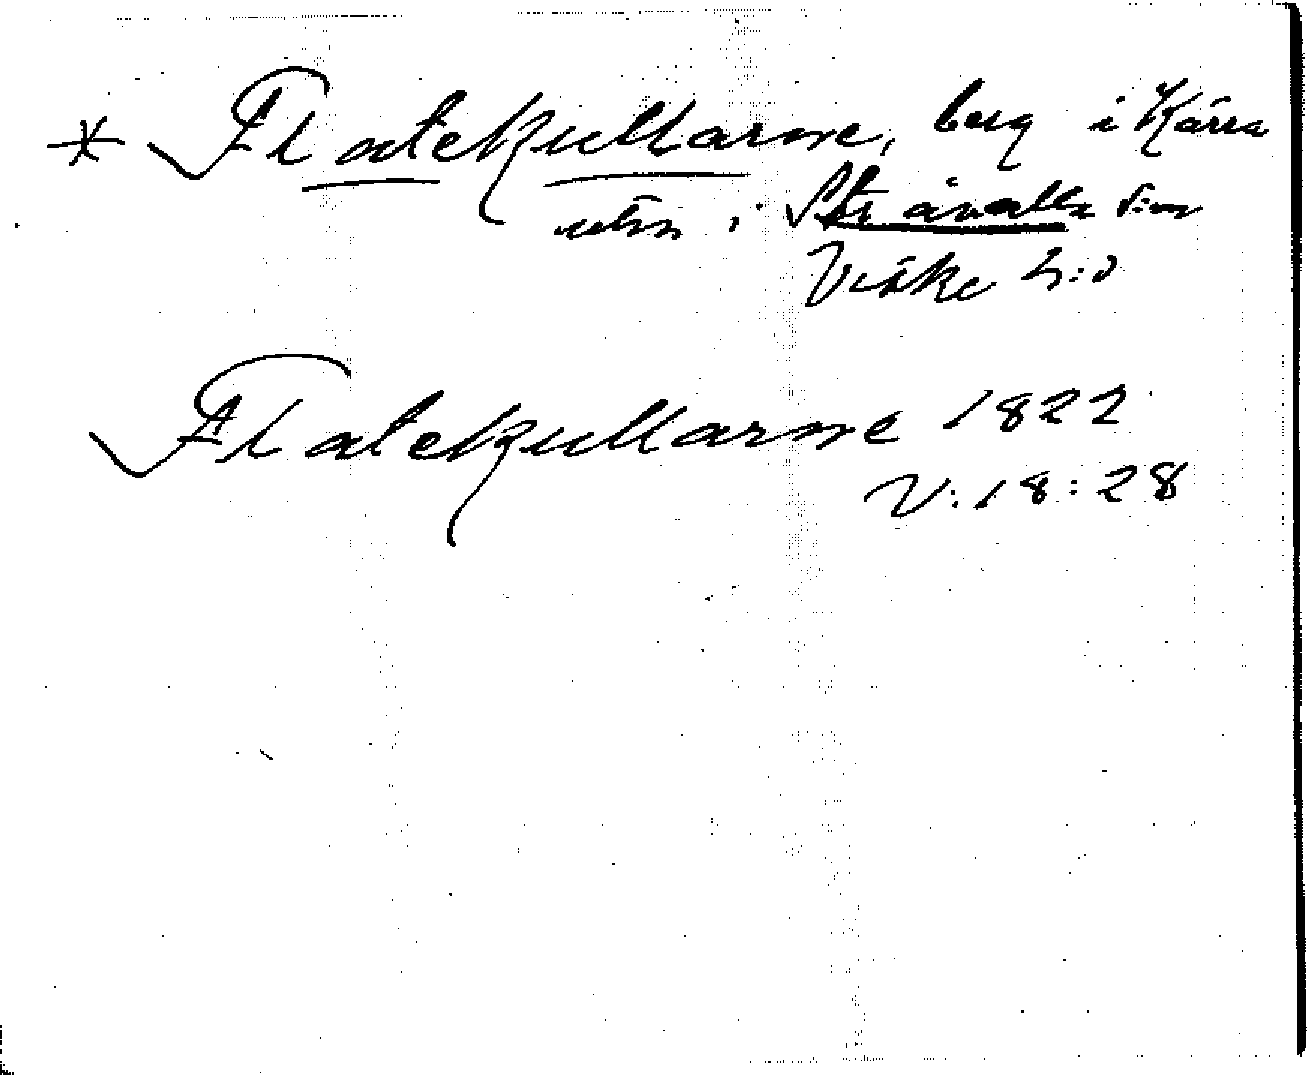 * Flatekullarne, berg i Kärra
utm, i Stråvalla s:n
Viske h:d
Flatekullarne 1822
V:18:28